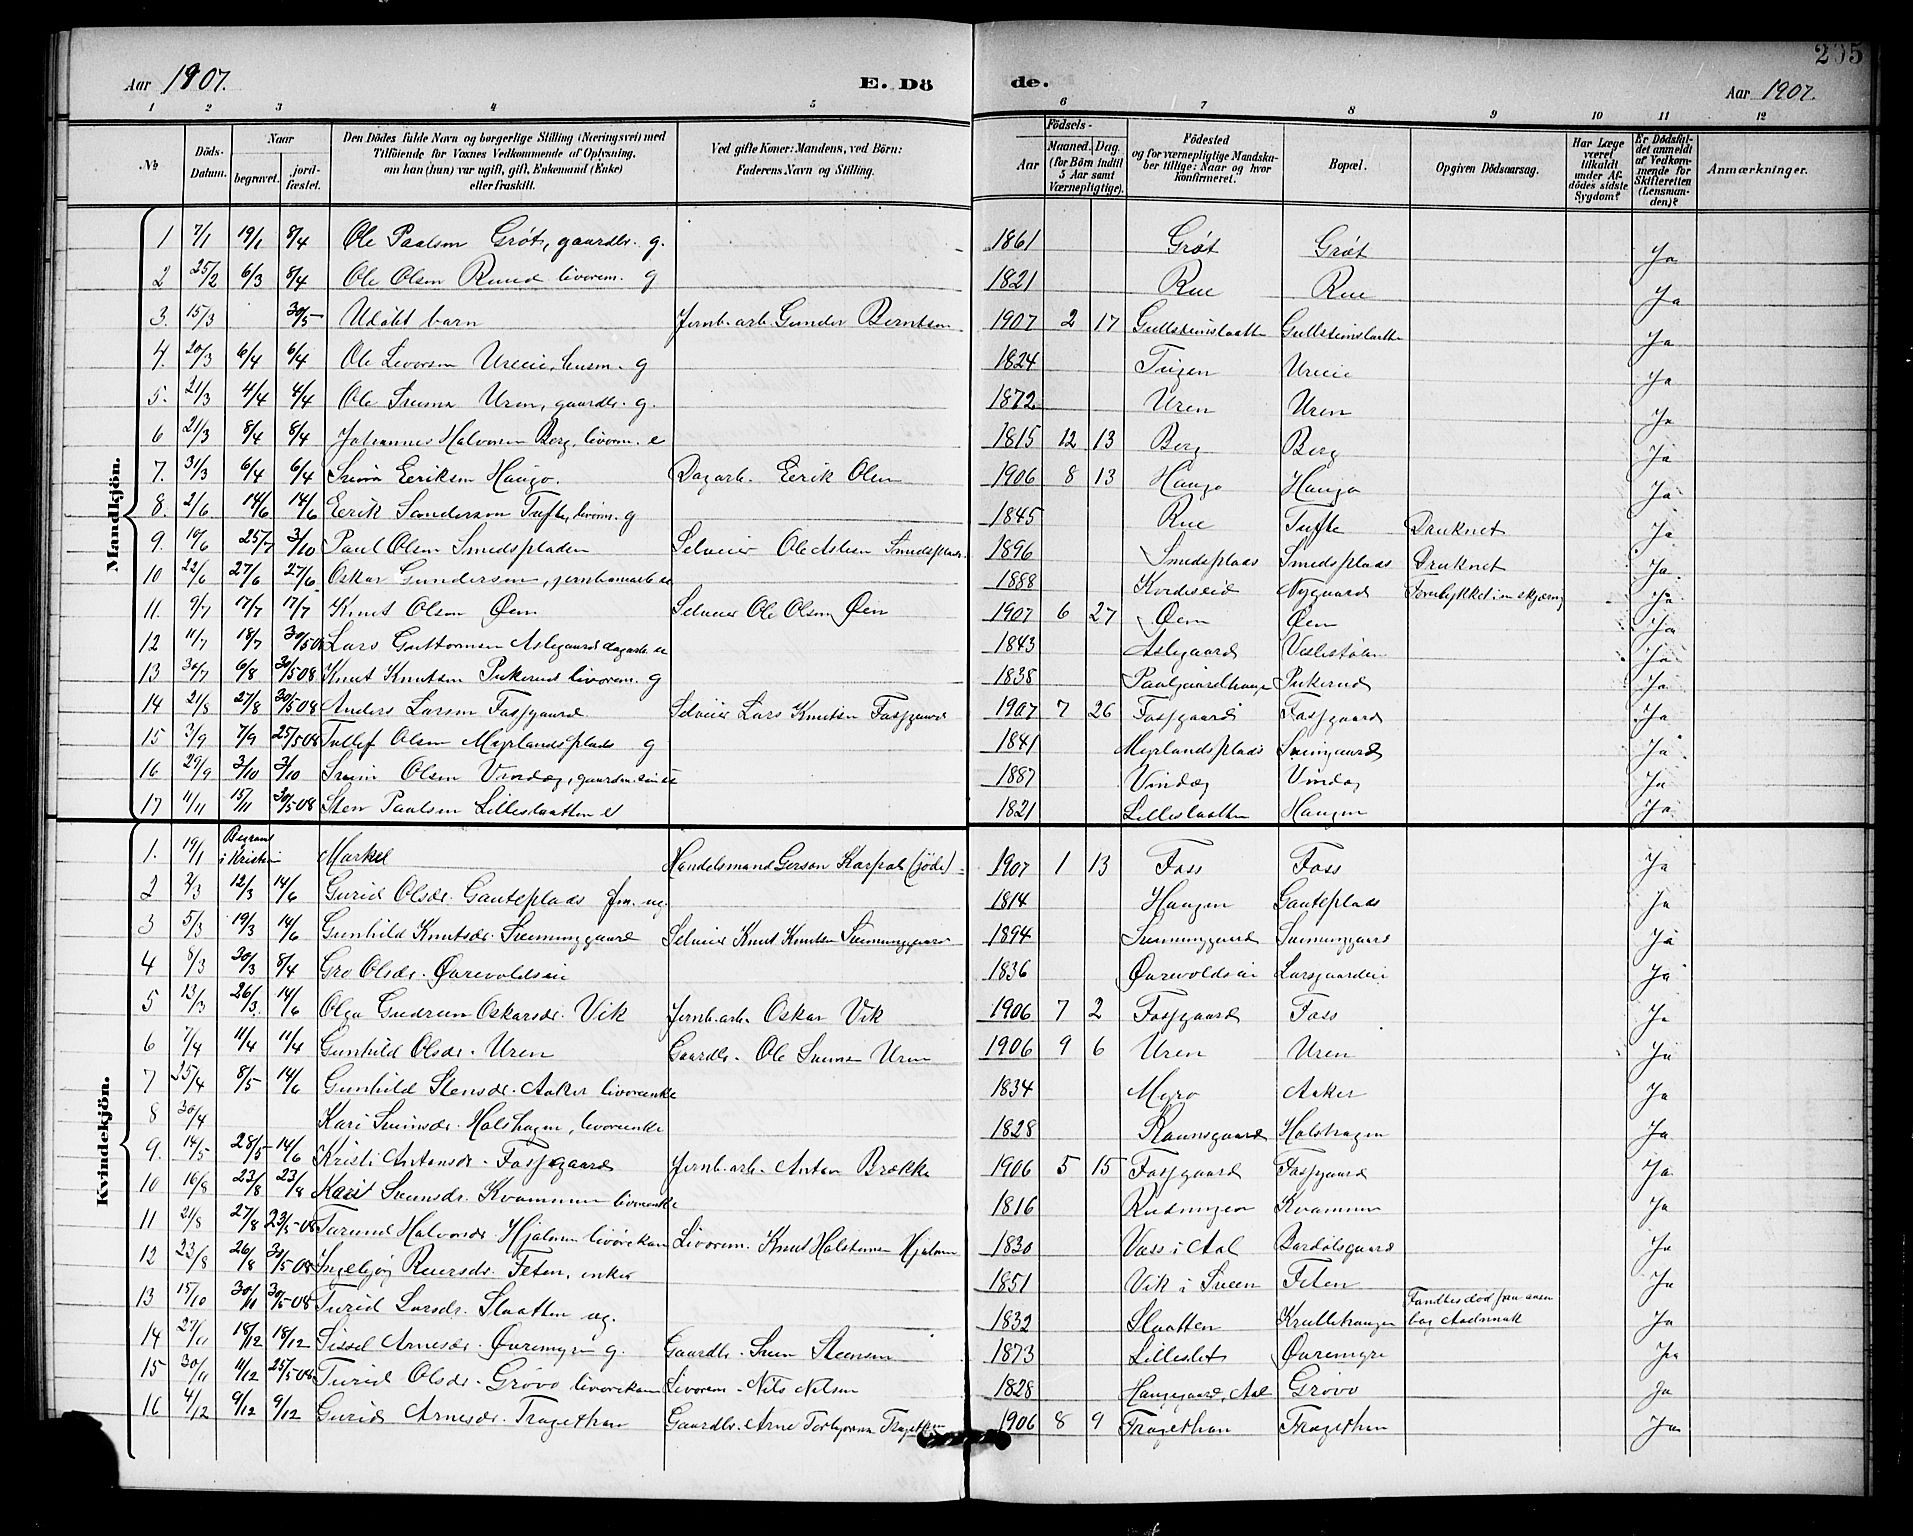 205
Aar 1907.
E. Dö
de.
Aar 1907.
1 2 3 4 5 6 7 8 9 10 11 12
No
Döds-Datum.
Naar
begravet.
jordfæstet.
Den Dödes fulde Navn og borgerlige Stilling (Næringsvei) med
Tilföiende for Voxnes Vedkommende af Oplysning,
om han (hun) var ugift, gift, Enkemand (Enke)
eller fraskilt.
Ved gifte Koner: Mandens, ved Börn:
Faderens Navn og Stilling.
Födsels-
Aar
Maaned. Dag.
(for Börn indtil
5 Aar samt
Værnepligtige).
Födested
og for værnepligtige Mandska-
ber tillige: Naar og hvor
konfirmeret.
Bopæl.
Opgiven Dödsaarsag.
Har Læge
været
tilkaldt
under Af-
dödes sidste
Sygdom?
Er Dödsfal-
det anmeldt
af Vedkom-
mende for
Skifteretten
(Lensman-
den)?
Anmærkninger.
Mandkjön.
1 7/1 19/1 8/4 Ole Paalsen Grøt, gaardbr. g. 1861 Grøt Grøt Ja
2 25/2 6/3 8/4 Ole Olsen Ruud livorem. g 1821 Rue Rue Ja
3. 15/3 30/5 Udöbt barn Jernb.arb. Gunder Berntsen 1907 2 17 Gullsteinslaatten Gullsteinslaatten Ja
4. 20/3 6/4 6/4 Ole Levorsen Ureeie, husm. g 1824 Tuigen Ureeie Ja
5. 21/3 4/4 4/4 Ole Svensen Uren, gaardbr. g. 1872 Uren Uren Ja
6 21/3 8/4 8/4 Johannes Halvorsen Berg, livorm. e 1815 12 13 Berg Berg Ja
7. 31/3 6/4 6/4 Svein Eeriksen Haugo. Dagarb. Eerik Olsen 1906 8 13 Haugo Haugo Ja
8. 2/6 14/6 14/6 Eerik Sanderson Tufte, livorm. g 1845 Rue Tufte Ja
9. 19/6 25/7 3/10 Paul Olsen Smedspladsen Selveier Ole Aslesen Smedsplads. 1896 Smedsplads Smedsplads Druknet Ja
10 22/6 27/6 27/6 Oskar Gundersen, jernbanearb. 1888 Kviteseid Nygaard Druknet Ja
11. 9/7 17/7 17/7 Knut Olsen Øen Selveier Ole Olsen Øen 1907 6 27 Øen Øen Ja
12 11/7 18/7 30/5 08 Lars Guttormsen Aslegaard dagarb. 1843 Aslegaard Ja
13 30/7 6/8 30/5 08 Knut Knutsen Pukerud livorem. g 1838 Pukerud Ja
14 21/8 27/8 30/5 08 Anders Larsen Fossgaard Selveier Lars Knutsen Fossgaard 1907 7 26 Fossgaard Fossgaard Ja
15 3/9 7/9 25/5 08 Tollef Olsen Myrlandsplads g 1841 Myrlandsplads Ja
16 29/9 3/10 3/10 Svein Olsen Vindøg, gaardm. 1887 Vindøg Vindøg Ja
17 11/11 15/11 30/5 08 Sten Paalsen Lilleslaatten e 1821 Lilleslaatten Haugen Ja
Kvindekjön.
1. 19/1 Begravet i Kristi Markel Handelsmand Gerson Karpol (jøde) 1907 1 13 Foss Foss Ja
2 2/3 12/3 14/6 Gurid Olsdr. Gauteplads fm. ug. 1814 Haugen Gauteplads Ja
3 5/3 19/3 14/6 Gunhild Knutsdr. Sveinunggaard Selveier Knut Knutsen Sveinunggaard 1894 Sveinunggaard Sveinunggaard Ja
4 8/3 30/3 8/4 Gro Olsdr. Øvrevoldseie 1836 Øvrevoldseie Larsgaardeie Ja
5 13/3 26/3 14/6 Olga Gudrun Oskarsdr. Vik Jernb.arb. Oskar Vik 1906 7 2 Fossgaard Foss Ja
6 7/4 11/4 11/4 Gunhild Olsdr. Uren Gaardbr. Ole Svensen Uren 1906 9 6 Uren Uren Ja
7 25/4 8/5 14/6 Gunhild Stensdr. Aaker livoreenke 1834 Myro Aaker Ja
8 30/4 Kari Sveinsdr. Holshagen, livoreenke 1828 Raunsgaard Holshagen Ja
9. 14/5 28/5 14/6 Kristi Antonsdr. Fossgaard Jernb.arb. Anton Brække 1906 5 15 Fossgaard Fossgaard Ja
10 16/8 23/8 23/8 Kari Sveinsdr. Kvammen livoreenke 1816 Rudningen Kvammen Ja
11 21/8 27/8 23/5 08 Torund Halvorsdr. Hjelmen livorekone Livorem. Knut Holstensen Hjelmen 1830 Voss i Aal Bardolsgaard Ja
12 23/8 26/8 30/5 08 Ingebjørg Reiersdr. Feten, enke 1851 Vik i Sveen Feten Ja
13 15/10 30/10 30/5 08 Turid Larsdr. Slaatten ug. 1832 Slaatten Krullehaugen Fandtes død Ja
14 27/11 18/12 18/12 Sissel Arnesdr. Øvremyren g. Gaardbr. Svein Steensen 1873 Lilleslet Øvremyre Ja
15 30/11 11/12 25/5 08 Turid Olsdr. Grøvo livorekone Livorem. Nils Nilsen 1828 Haugegaard, Aal Grøvo Ja
16 4/12 9/12 9/12 Gurid Arnesdr. Tragethon Gaardbr. Arne Torbjørnsen Tragethon 1906 8 9 Tragethon Tragethon Ja